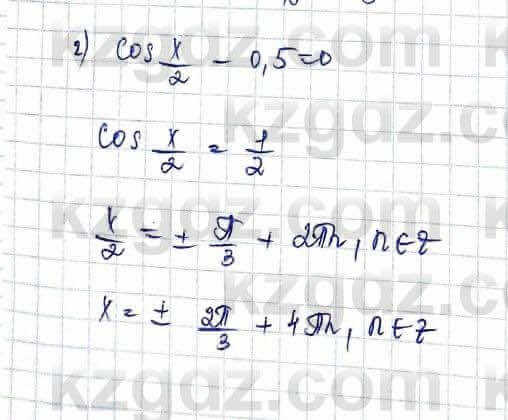 2) cos x/2 - 0,5 = 0
cos x/2 = 1/2
x/2 = ± π/3 + 2πn, n ∈ Z
x = ± 2π/3 + 4πn, n ∈ Z
kzgdz.com